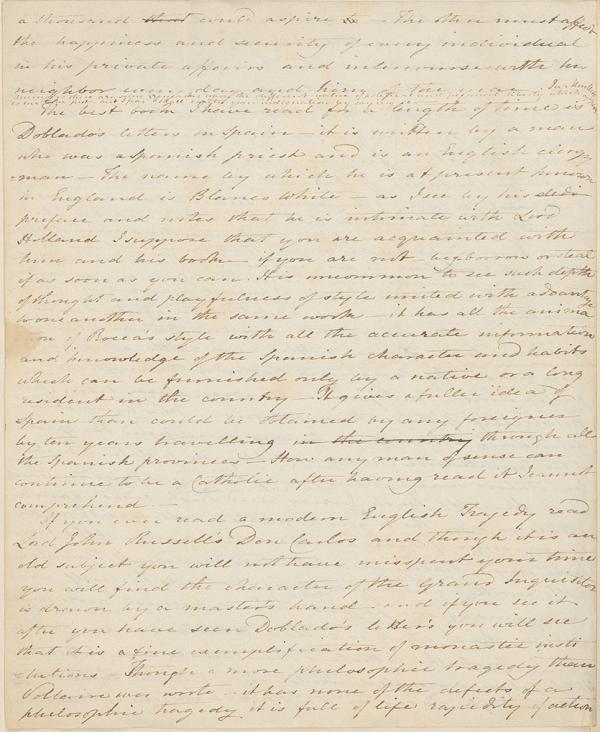 a thousand could aspire to – The other must affect
the happiness and security of every individual
in his private affairs and intercourse with his
neighbor every day and hour of the
The best book I have read for a length of time is
Doblado's letters on Spain – it is written by a man
who was a Spanish priest and is an English clergy
=man – The name by which he is at present known
in England is Blanco White – as I see by his dedi
preface and notes that he is intimate with Lord
Holland I suppose that you are acquainted with
him and his book – if you are not buy borrow or steal
it as soon as you can. It is uncommon to see such depth
of thought and playfulness of style united with advantage
to one another in the same work – it has all the anima
tion of Rocca's style with all the accurate information
and knowledge of the Spanish character and habits
which can be furnished only by a native or a long
resident in the country – It gives a fuller idea of
Spain than could be obtained by any foreigner
by ten years travelling in the country through all
the Spanish provinces – How any man of sense can
continue to be a Catholic after having read it I cannot
comprehend –
If you can read a modern English Tragedy read
Lord John Russell's Don Carlos and though it is an
old subject you will not have misspent your time
you will find the character of the Grand Inquisitor
is drawn by a master's hand – and if you see it
after you have seen Doblado's letters you will see
that it is a fine exemplification of monastic insti
=tutions – Though a more philosophic tragedy than
Voltaire ever wrote – it has none of the defects of a
philosophic tragedy it is full of life rapidity of action